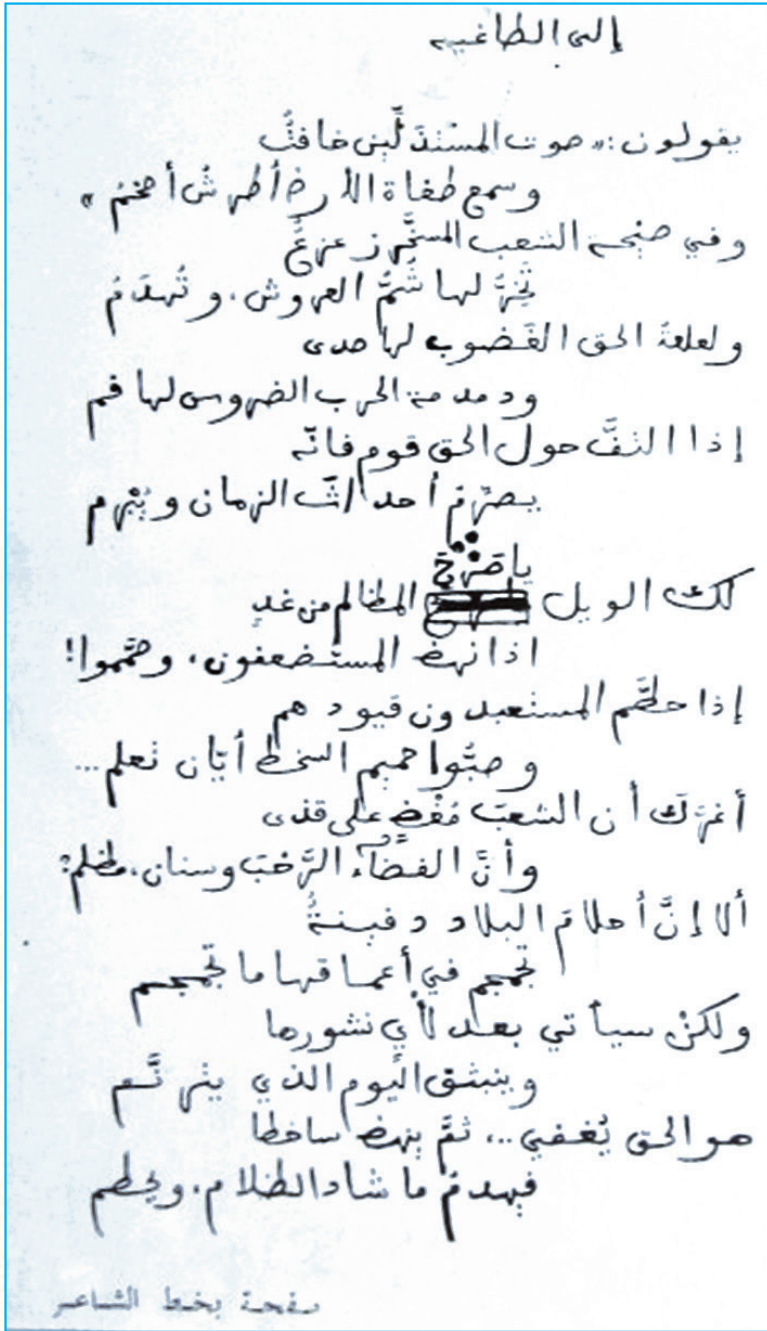 إلى الطاغية
يقولون: «صوت المستذلّين خافتٌ
وسمع طغاة الأرض أطرشُ أضخمُ»
وفي صيحة الشعب المسخّر زعزعٌ
تخِرُّ لها شُمُّ العروش. وتُهدَمُ
ولعلعة الحق الغَضوب لها صدى
ودمدمة الحرب الضروس لها فم
إذا التفَّ حول الحق قوم فانّه
يصرّم أحداثَ الزمان ويُبْرم
يا صَرْحَ
لك الويل المظالم من غدٍ
اذا نهض المستضعفون. وصمّموا!
إذا حطّم المستعبدون قيودهم
وصبُّوا حميم السخط أيّان تعلم...
أغرّك أن الشعبَ مُغْضٍ على قذى
وأنَّ الفضاءَ الرَّحْبَ وسنان. مظلم؟
ألا إنَّ أحلامَ البلاد دفينةٌ
تجمجم في أعماقها ما تجمجم
ولكنْ سيأتي بعد لأْي نشورها
وينبثق اليوم الذي يترنَّم
هو الحق يُغفي... ثمَّ ينهض ساخطا
فيهدمُ ما شاد الظلام. ويحطم
صفحة بخط الشاعر